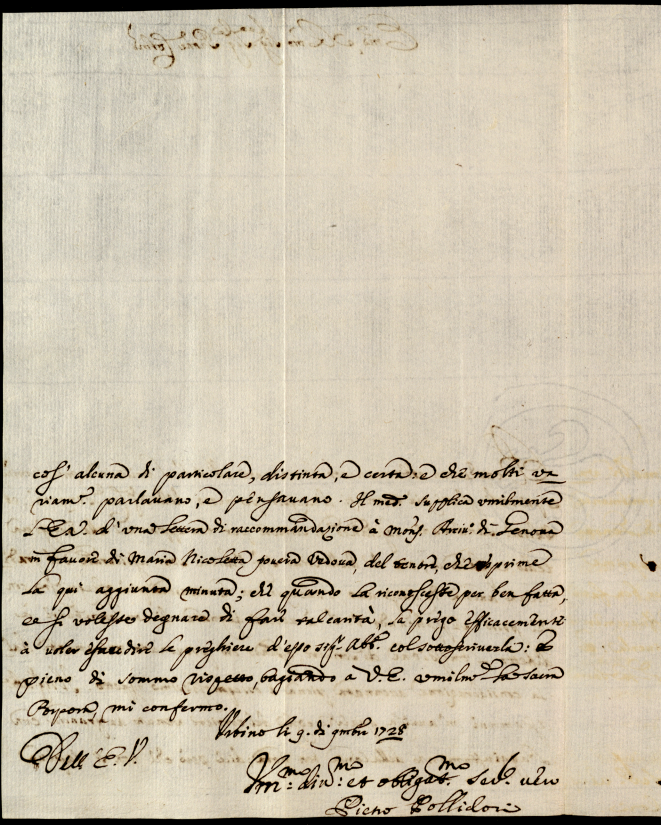 cos' alcuna di particolare, distinta, e certa: e che molti va-
riam.e parlavano, e pensavano. Il med.o supplica umilmente
l'E.a V.a d'una lettera di raccomandazione à Mons. Arciv. di Genova
in favore di Maria Nicoletta povera Vedova, del tenore, che esprime
la qui aggiunta minuta; che quando la riconoscesse per ben fatta,
e si volesse degnare di far tal carità, la priego efficacemente
à voler esaudire le preghiere d'esso sig.r Abb. col sottoscriverla: E
pieno di sommo rispetto, baciando a V.E. umilm.e la sacra
Porpora mi confermo.
Urbino li 9. di 9mbre 1728
Dell' E. V.
Um.mo div.mo et obligat.mo Ser.r vero
Pietro Pollidori